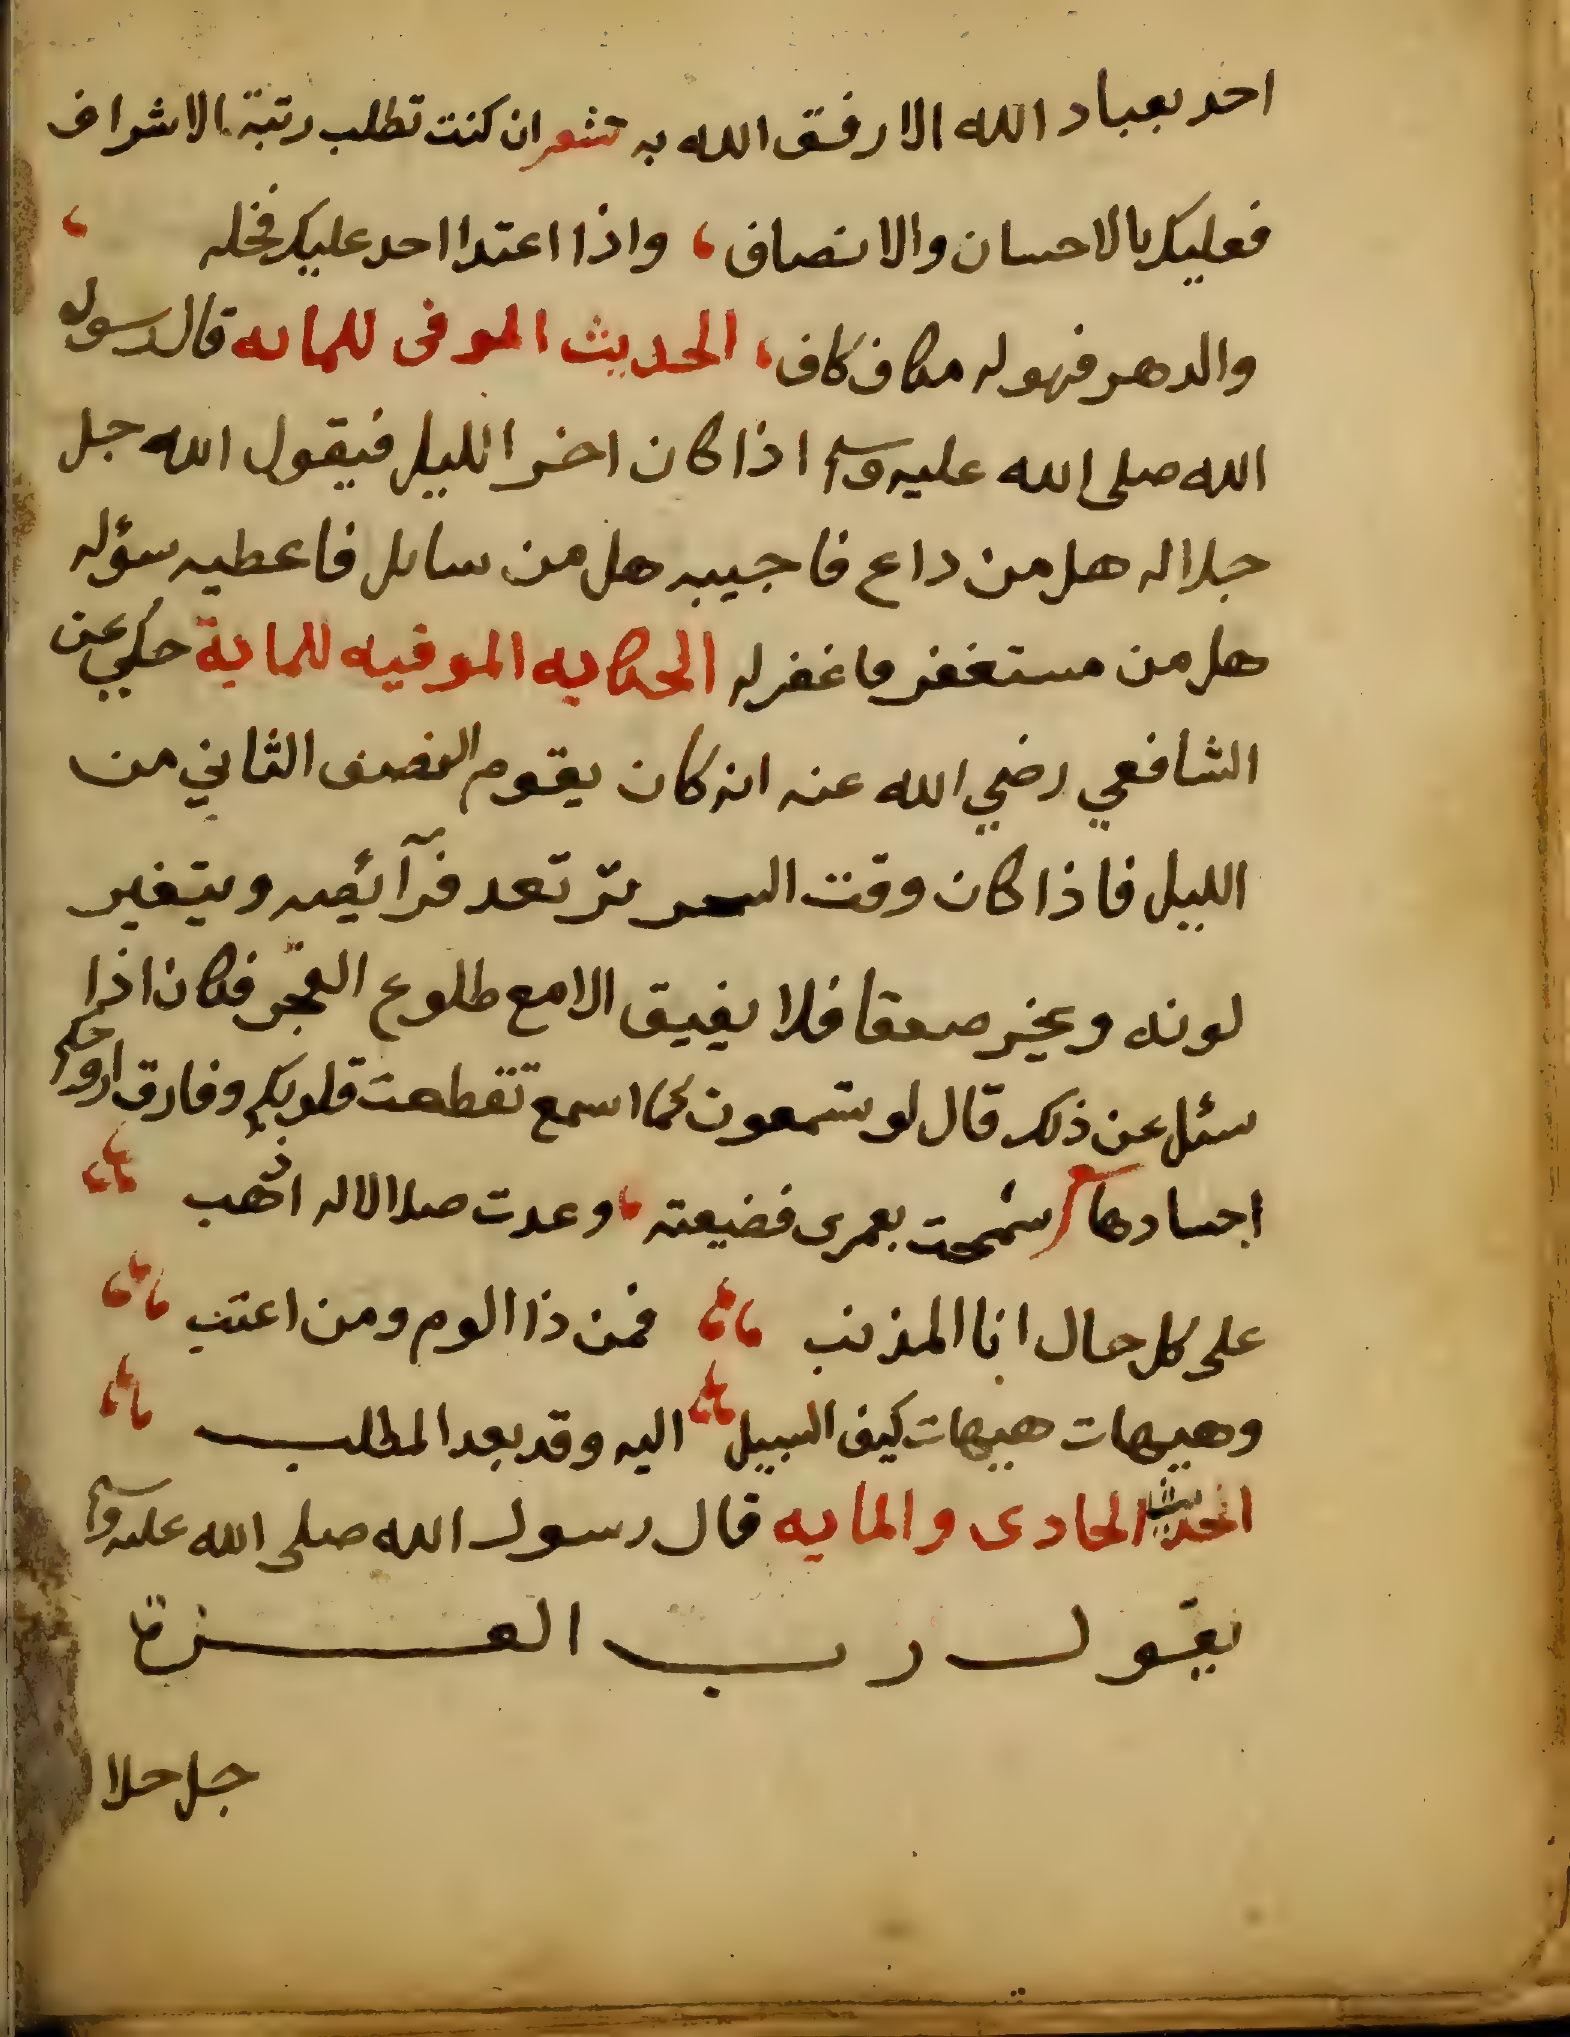 احد بعباد الله الا رفق الله به شعر ان كنت تطلب رتبة الاشراف
فعليك بالاحسان والانصاف ، واذا اعتدا احد عليك فخله ،
والدهر فهو له مكاف كاف ، الحديث الموفى للمايه قال رسول
الله صلى الله عليه وسلم اذا كان اخر الليل فيقول الله جل
جلاله هل من داع فاجيبه هل من سائل فاعطيه سؤله
هل من مستغفر فاغفر له الحكايه الموفيه للماية حكي عن
الشافعي رضي الله عنه انه كان يقوم النصف الثاني من
الليل فاذا كان وقت السحر ترتعد فرآئصه ويتغير
لونه ويخر صعقا فلا يفيق الا مع طلوع الفجر فكان اذا
سئل عن ذلك قال لو تسمعون كما اسمع تقطعت قلوبكم وفارق ارواحكم
اجسادها سمحت بعمرى فضيعته ، وعدت صلا الاله اذهب
على كل حال انا المذنب فمن ذا الوم ومن اعتب
وهيهات هيهات كيف السبيل اليه وقد بعد المطلب
الحديث الحادى والمايه قال رسول الله صلى الله عليه وسلم
يقول رب العزة
جل جلا